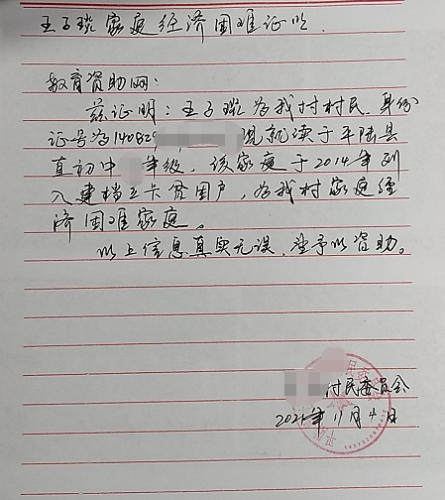 王子璇家庭经济困难证明.
教育资助网:
兹证明:王子璇为我村村民.身份
证号为140829 现就读于平陆县
直初中 年级.该家庭于2014年列
入建档立卡贫困户,为我村家庭经
济困难家庭。
以上信息真实无误.望予以资助。
村民委员会
2021年11月4日